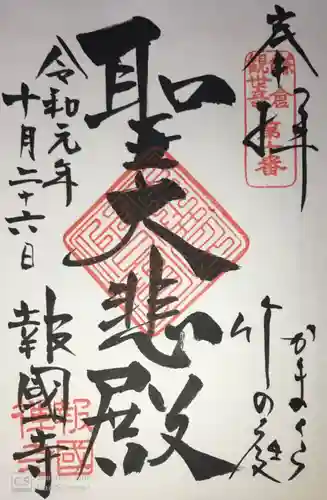 奉拝
鎌倉
観世音
第十番
かまくら
竹の庭
聖大悲殿
令和元年
十月二十六日
報國寺
報國